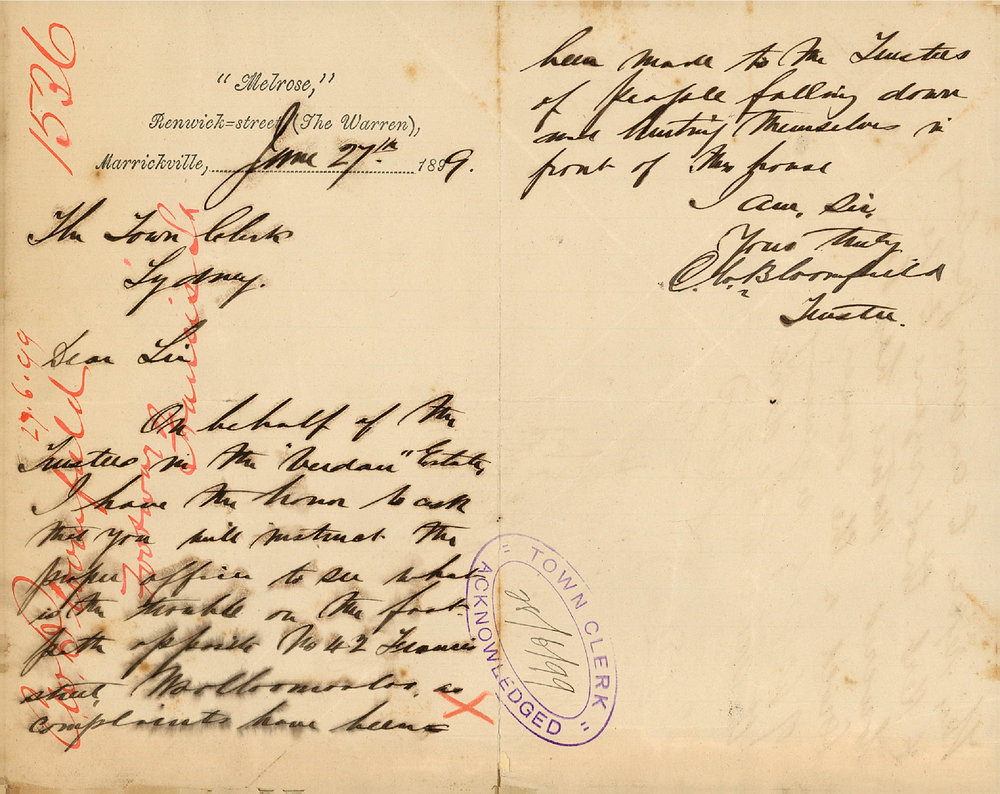 1526
"Melrose,"
Renwick=street (The Warren),
Marrickville, June 27th 1899.
The Town Clerk
Sydney.
Dear Sir
On behalf of the
Trustees in the "Verdan" Estate,
I have the honor to ask
that you will instruct the
proper officer to see what
is the trouble on the foot
path opposite No 42 Francis
street, Woolloomooloo, as
complaints have been
been made to the Trustees
of people falling down
and hurting themselves in
front of this house
I am, Sir,
Yours truly
Bloomfield
Trustee.
29.6.99
Bloomfield
Footway
Francis St
X
"TOWN CLERK"
ACKNOWLEDGED
28/6/99